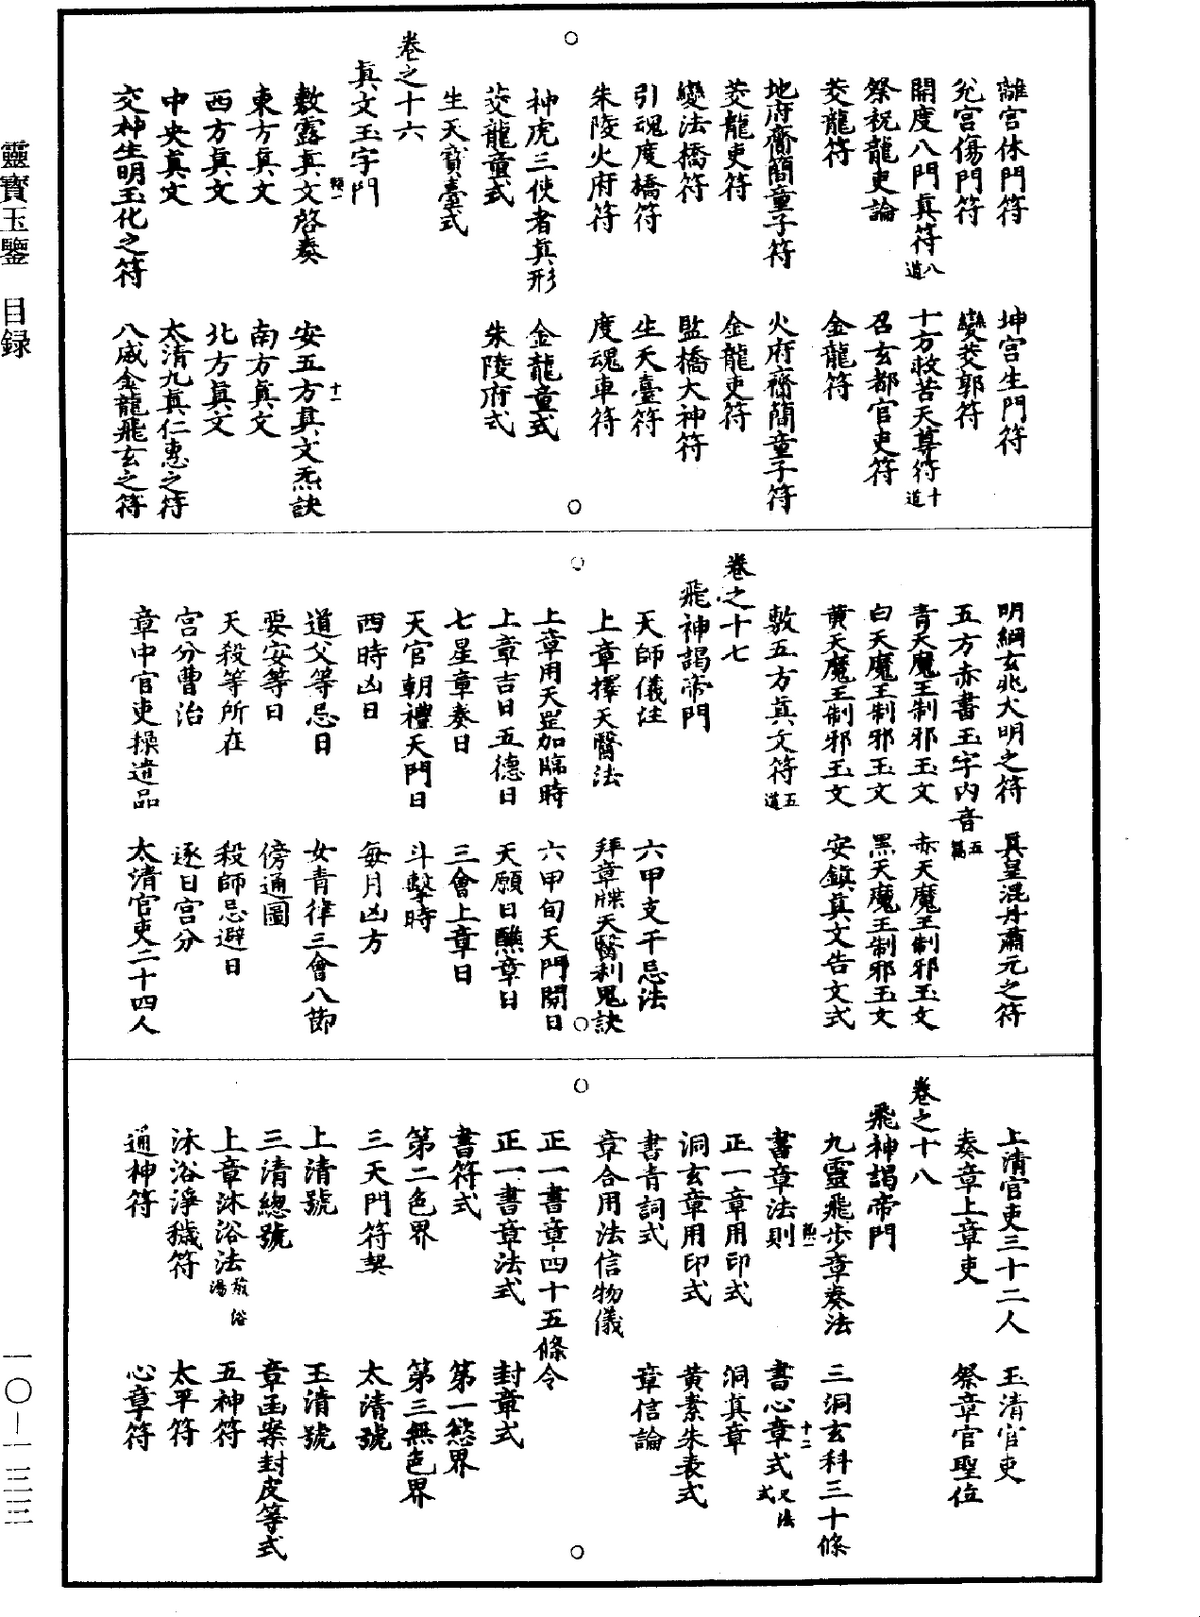 靈寶玉鑒　目録
離宮休門符　坤宮生門符
兊宮傷門符　變茭郭符
開度八門真符八道　十方救苦天尊符十道
祭祝龍吏論　召玄都官吏符
茭龍符　金龍符
地府齋簡童子符　火府齋簡童子符
茭龍吏符　金龍吏符
變法橋符　監橋大神符
引魂度橋符　生天臺符
朱陵火府符　度魂車符
神虎三使者真形　金龍童式
茭龍童式　朱陵府式
生天寳臺式
卷之十六
真文玉字門
敷露真文啓奏　安五方真文炁訣
東方真文　南方真文
西方真文　北方真文
中央真文　太清九真仁惠之符
交神生明玉化之符　八威金龍飛玄之符
明綱玄兆大明之符　真皇混丹肅元之符
五方赤書玉字内音五篇
青天魔王制邪玉文　赤天魔王制邪玉文
白天魔王制邪玉文　黑天魔王制邪玉文
黄天魔王制邪玉文　安鎮真文告文式
敷五方真文符五道
卷之十七
飛神謁帝門
天師儀注　六甲支干忌法
上章擇天醫法　拜章牒天醫利鬼訣
上章用天罡加臨時　六甲旬天門開日
上章吉日五德日　天願日醮章日
七星章奏日　三會上章日
天官朝禮天門日　斗擊時
四時凶日　每月凶方
道父等忌日　女青律三會八節
要安等日　傍通圖
天殺等所在　殺師忌避日
宮分曹治　逐日宮分
章中官吏操遣品　太清官吏二十四人
上清官吏三十二人　玉清官吏
奏章上章吏　祭章官聖位
卷之十八
飛神謁帝門
九靈飛步章奏法　三洞玄科三十條
書章法則　書心章式又法式
正一章用印式　洞真章
洞玄章用印式　黄素朱表式
書青詞式　章信論
章合用法信物儀
正一書章四十五條令
正一書章法式　封章式
書符式　第一慾界
第二色界　第三無色界
三天門符契　太清號
上清號　玉清號
三清總號　章函案封皮等式
上章沐浴法　五神符
沐浴淨穢符　太平符
通神符　心章符
一〇－一三三